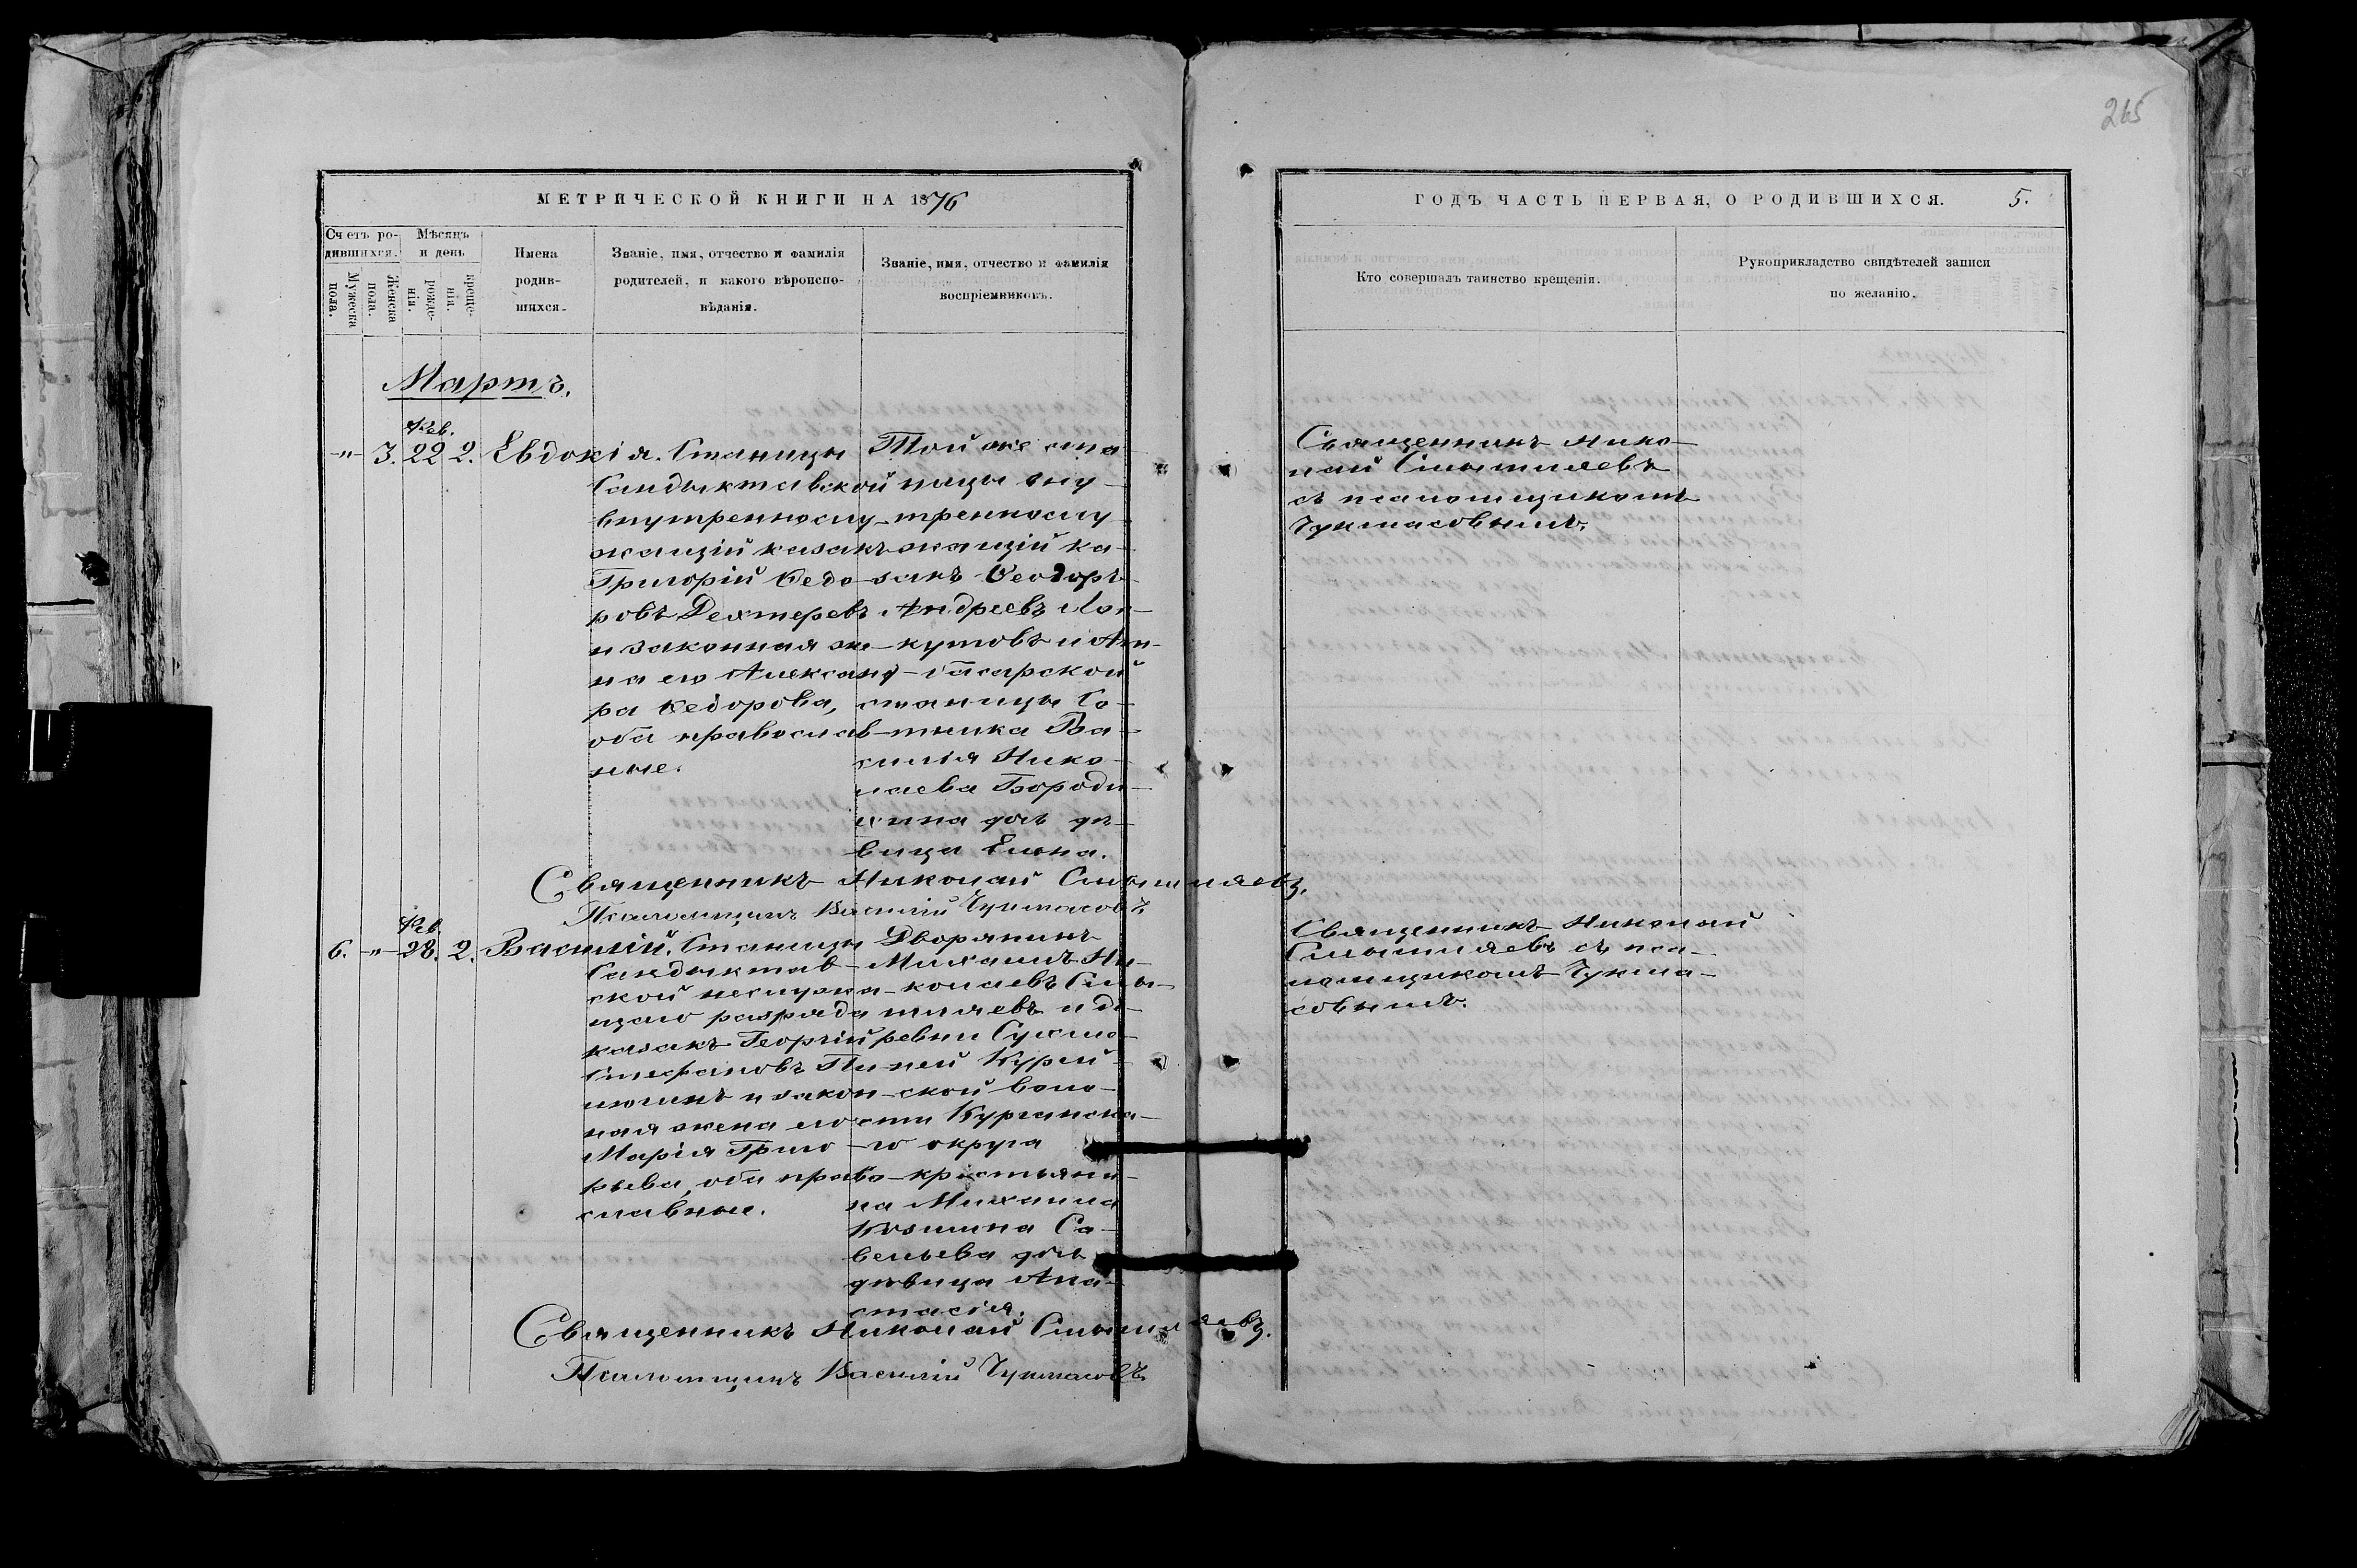 265
МЕТРИЧЕСКОЙ КНИГИ НА 1876
ГОДЪ ЧАСТЬ ПЕРВАЯ, О РОДИВШИХСЯ. 5.
Счетъ ро-
дившихся.
Мужеска
пола.
Женска
пола.
Мѣсяцъ
и день
рожде-
нія.
креще-
нія.
Имена
родив-
шихся.
Званіе, имя, отчество и фамилія
родителей, и какого вѣроиспо-
вѣданія.
Званіе, имя, отчество и фамилія
воспріемниковъ.
Кто совершалъ таинство крещенія.
Рукоприкладство свидѣтелей записи
по желанію.
Мартъ.
Фев.
-"- 3. 22 2. Евдокія.
Станицы
Сандыктавской
внутреннослу-
жащій казакъ
Григорій Ѳедо-
ровъ Дехтеревъ
и законная же-
на его Александ-
ра Ѳедорова,
оба православ-
ные.
Той же ста-
ницы вну-
треннослу-
жащій ка-
закъ Ѳеодоръ
Андреевъ Ло-
кутовъ и Ат-
басарской
станицы Со-
тника Ва-
силія Нико-
лаева Бороди-
хина дочь дѣ-
вица Елена.
Священникъ Нико-
лай Смышляевъ
съ псаломщикомъ
Чукмасовымъ.
Священникъ Николай Смышляевъ.
Псаломщикъ Василій Чукмасовъ
Фев.
6. -"- 28. 2. Василій.
Станицы
Сандыктав-
ской неслужа-
щаго разряда
казакъ Георгій
Стефановъ
и закон-
ная жена его
Марія Григо-
рьева, оба право-
славные.
Дворянинъ
Михаилъ Ни-
колаевъ Смы-
шляевъ и де-
ревни Сухме-
ней
ской воло-
сти Курганска-
го округа
крестьяни-
на Михаила
Козмина Са-
вельева дочь
дѣвица Ана-
стасія.
Священникъ Николай
Смышляевъ съ пса-
ломщикомъ Чукма-
совымъ.
Священникъ Николай Смышляевъ.
Псаломщикъ Василій Чукмасовъ.